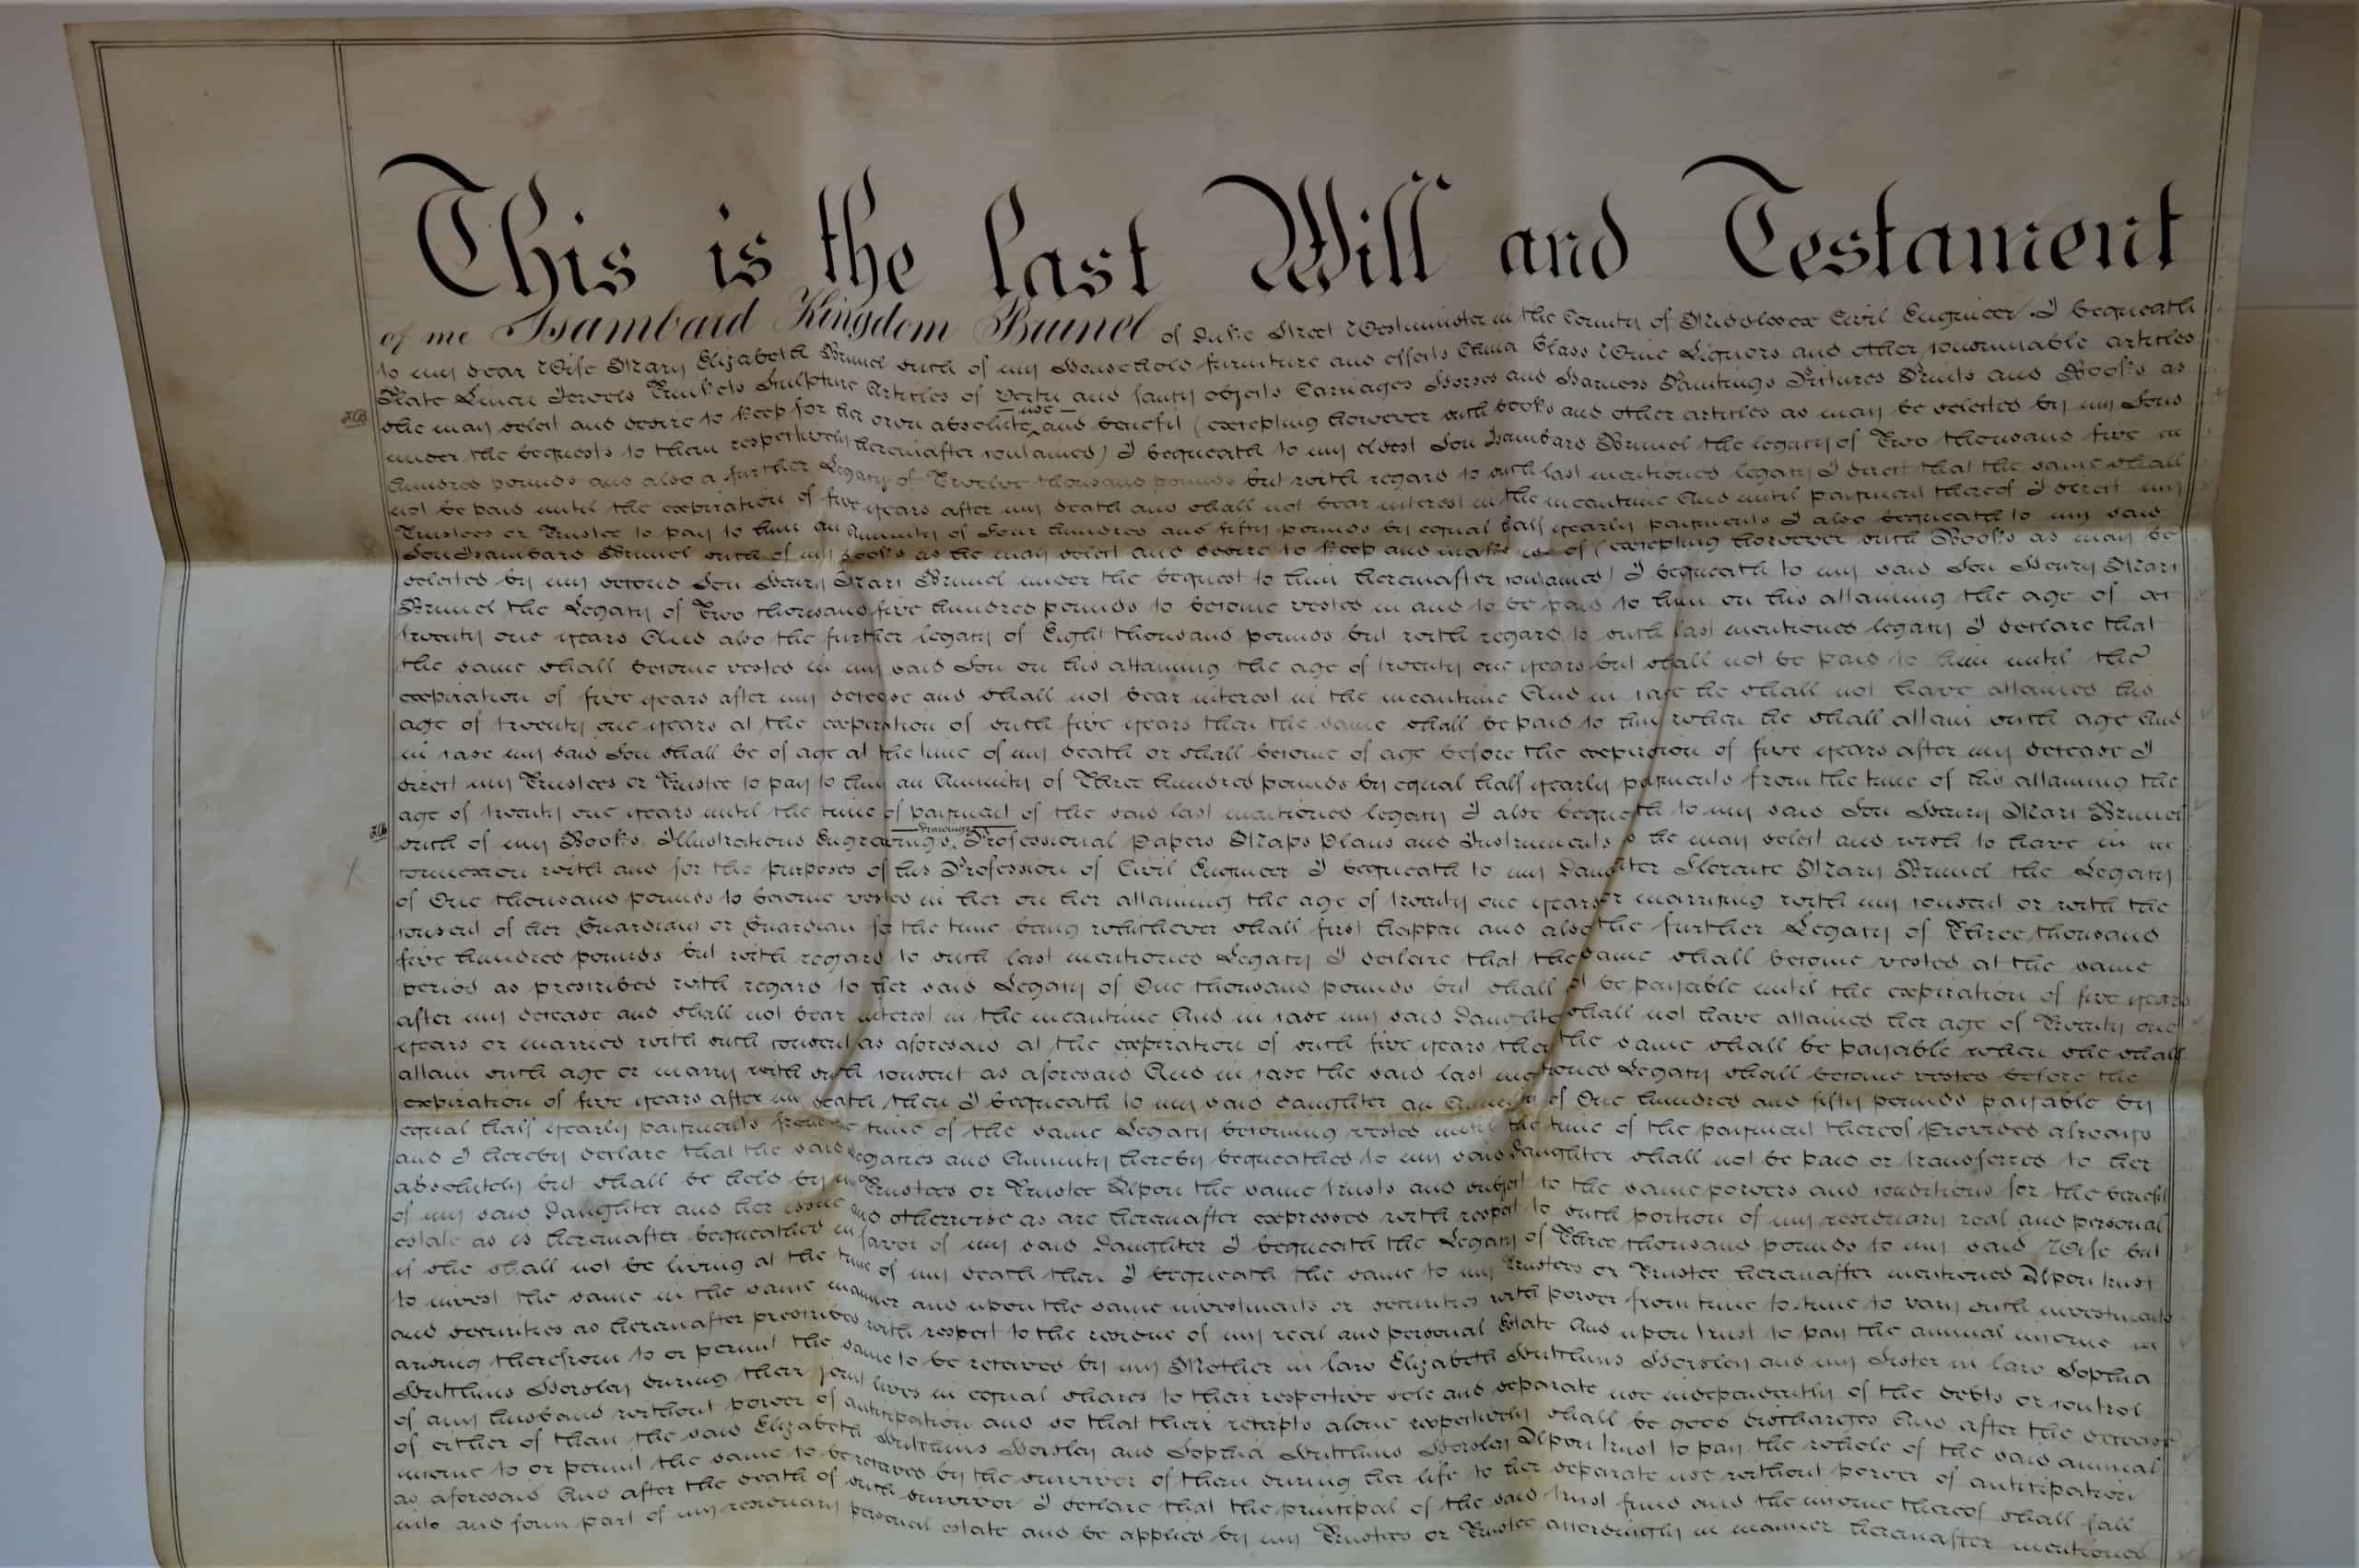 This is the last Will and Testament
of me Isambard Kingdom Brunel of Duke Street Westminster in the County of Middlesex Civil Engineer. I bequeath
to my dear Wife Mary Elizabeth Brunel such of my Household furniture and effects China Glass Wine Liquors and other consumable articles
Plate Linen Jewels Trinkets Sculpture Articles of Vertu and fancy objects Carriages Horses and Harness Paintings Pictures Prints and Books as
she may select and desire to keep for her own absolute use and benefit (excepting however such books and other articles as may be selected by my Sons
under the bequests to them respectively hereinafter contained) I bequeath to my eldest Son Isambard Brunel the legacy of Two thousand five
hundred pounds and also a further Legacy of Twelve thousand pounds but with regard to such last mentioned legacy I direct that the same shall
not be paid until the expiration of five years after my death and shall not bear interest in the meantime And until payment thereof I direct my
Trustees or Trustee to pay to him an Annuity of Four hundred and fifty pounds by equal half yearly payments I also bequeath to my said
Son Isambard Brunel such of my books as he may select and desire to keep and make use of (excepting however such Books as may be
selected by my second Son Henry Marc Brunel under the bequest to him hereinafter contained) I bequeath to my said Son Henry Marc
Brunel the Legacy of Two thousand five hundred pounds to become vested in and to be paid to him on his attaining the age of
twenty one years And also the further legacy of Eight thousand pounds but with regard to such last mentioned legacy I declare that
the same shall become vested in my said Son on his attaining the age of twenty one years but shall not be paid to him until the
expiration of five years after my decease and shall not bear interest in the meantime And in case he shall not have attained his
age of twenty one years at the expiration of such five years then the same shall be paid to him when he shall attain such age And
in case my said Son shall be of age at the time of my death or shall become of age before the expiration of five years after my decease I
direct my Trustees or Trustee to pay to him an Annuity of Three hundred pounds by equal half yearly payments from the time of his attaining the
age of twenty one years until the time of payment of the said last mentioned legacy I also bequeath to my said Son Henry Marc Brunel
such of my Books Illustrations Engravings, Drawings Professional Papers Maps Plans and Instruments as he may select and wish to have in
connexion with and for the purposes of his Profession of Civil Engineer I bequeath to my Daughter Florence Mary Brunel the Legacy
of One thousand pounds to become vested in her on her attaining the age of twenty one years or marrying with my consent or with the
consent of her Guardians or Guardian for the time being whichever shall first happen and also the further Legacy of Three thousand
five hundred pounds but with regard to such last mentioned Legacy I declare that the same shall become vested at the same
period as prescribed with regard to her said Legacy of One thousand pounds but shall not be payable until the expiration of five years
after my decease and shall not bear interest in the meantime And in case my said Daughter shall not have attained her age of Twenty one
years or married with such consent as aforesaid at the expiration of such five years then the same shall be payable when she shall
attain such age or marry with such consent as aforesaid And in case the said last mentioned Legacy shall become vested before the
expiration of five years after my death, then I bequeath to my said daughter an Annuity of One hundred and fifty pounds payable by
equal half yearly payments from the time of the same Legacy becoming vested until the time of the payment thereof Provided always
and I hereby declare that the said Legacies and Annuity hereby bequeathed to my said Daughter shall not be paid or transferred to her
absolutely but shall be held by my Trustees or Trustee Upon the same trusts and subject to the same powers and conditions for the benefit
of my said Daughter and her issue and otherwise as are hereinafter expressed with respect to such portion of my residuary real and personal
estate as is hereinafter bequeathed in favor of my said Daughter I bequeath the Legacy of Three thousand pounds to my said Wife but
if she shall not be living at the time of my death then I bequeath the same to my Trustees or Trustee hereinafter mentioned Upon trust
to invest the same in the same manner and upon the same investments or securities with power from time to time to vary such investments
and securities as hereinafter prescribed with respect to the residue of my real and personal Estate And upon trust to pay the annual income
arising therefrom to or permit the same to be received by my Mother in law Elizabeth Hutchins Horsley and my Sister in law Sophia
Hutchins Horsley during their joint lives in equal shares to their respective sole and separate use independently of the debts or control
of any husband without power of anticipation and so that their receipts alone respectively shall be good discharges And after the decease
of either of them the said Elizabeth Hutchins Horsley and Sophia Hutchins Horsley Upon trust to pay the whole of the said annual
income to or permit the same to be received by the survivor of them during her life to her separate use without power of anticipation
as aforesaid And after the death of such survivor I declare that the principal of the said trust fund and the income thereof shall fall
into and form part of my residuary personal estate and be applied by my Trustees or Trustee accordingly in manner hereinafter mentioned